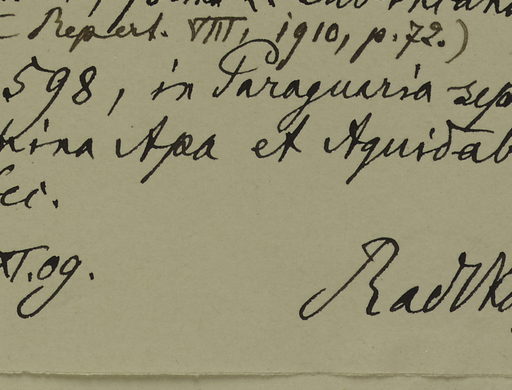 = Repert. VIII, 1910, p. 72.)
598, in Paraguaria sep
mina Apa et Aguidab
ei.
XI. 09.
Radlk